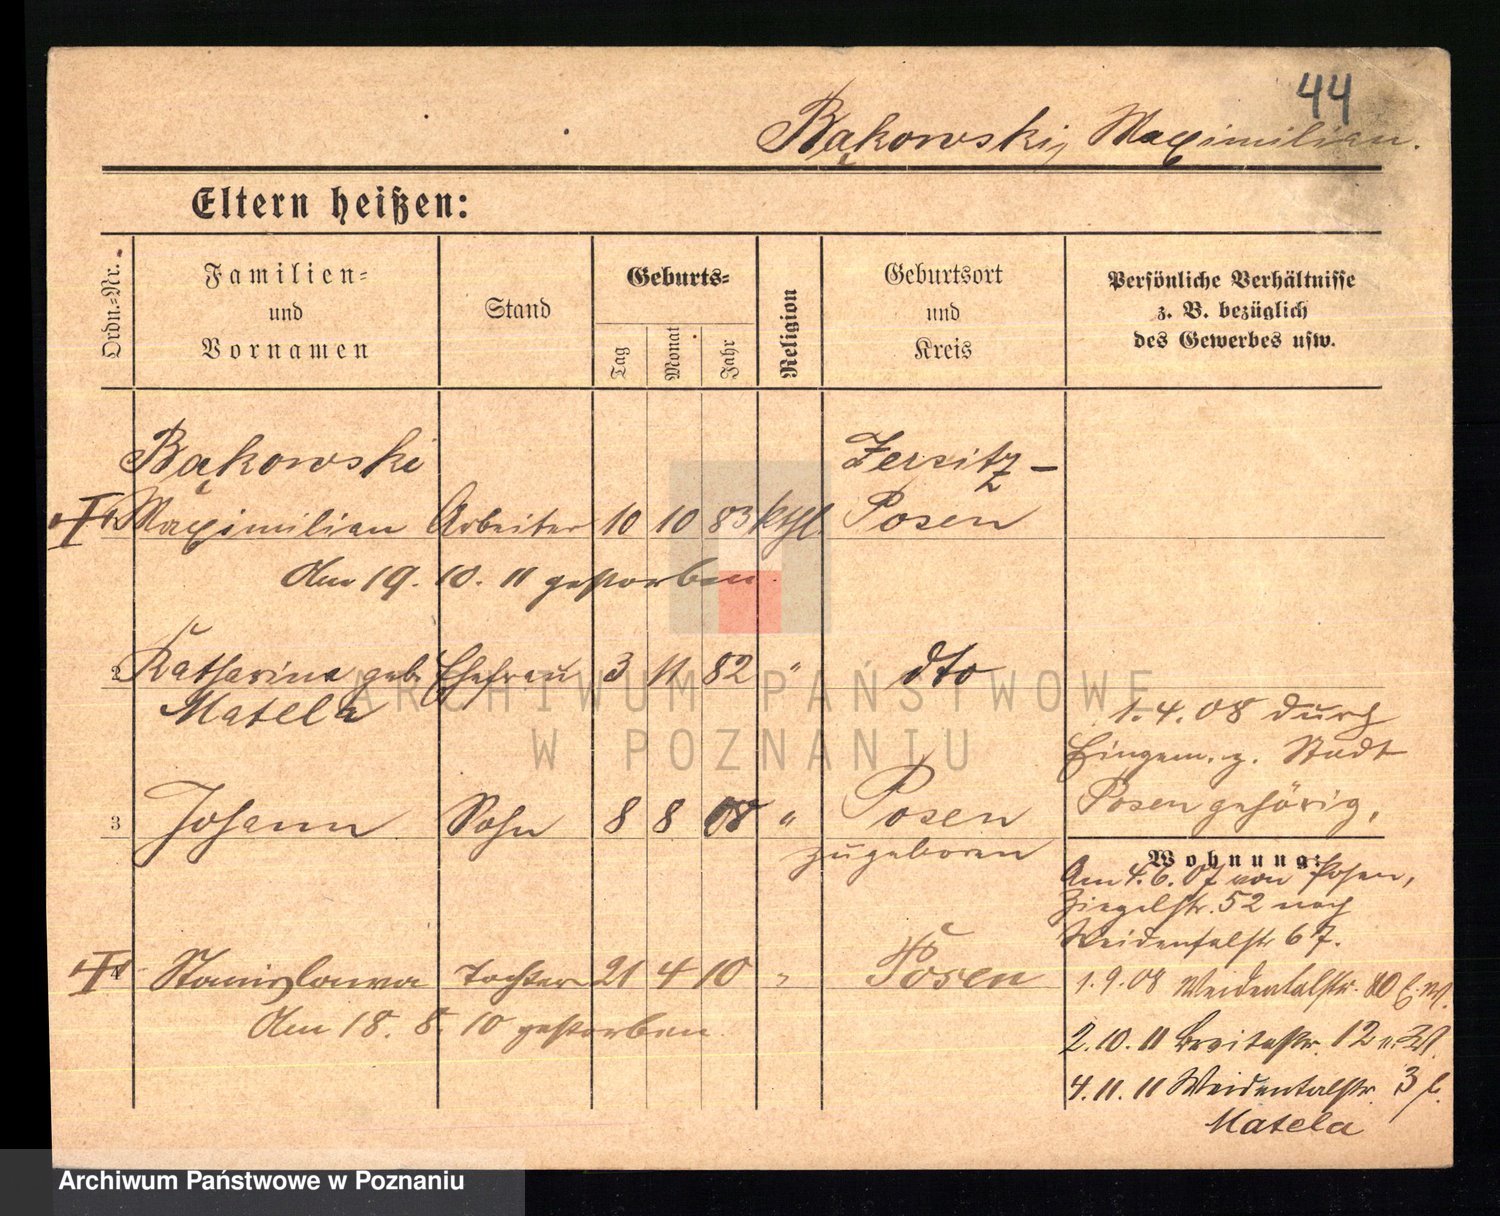 44
Bąkowski, Maximilian.
Eltern heißen:
Ordn.-Nr.
Familien-
und
Vornamen
Stand
Geburts-
Tag
Monat
Jahr
Religion
Geburtsort
und
Kreis
Persönliche Verhältnisse
z. B. bezüglich
des Gewerbes usw.
Bąkowski Zersitz -
Maximilian Arbeiter 10 10 83 kthl. Posen
Am 19. 10. 11 gestorben.
2 Katharina geb. Ehefrau 3 11 82 " dto
Matela
1.4.08 durch
Eingem. z. Stadt
Posen gehörig.
3 Johann Sohn 8 8 08 " Posen
zugeboren
Wohnung:
Am 4.6.07 von Posen,
Ziegelstr. 52 nach
Weidentalstr 67.
4 Stanislawa Tochter 21 4 10 " Posen
Am 18. 8. 10 gestorben.
1.9.08 Weidentalstr. 80 E.W.
2.10.11 Breitestr. 12
4.11.11 Weidentalstr. 3 b.
Matela
ARCHIWUM PAŃSTWOWE
W POZNANIU
Archiwum Państwowe w Poznaniu